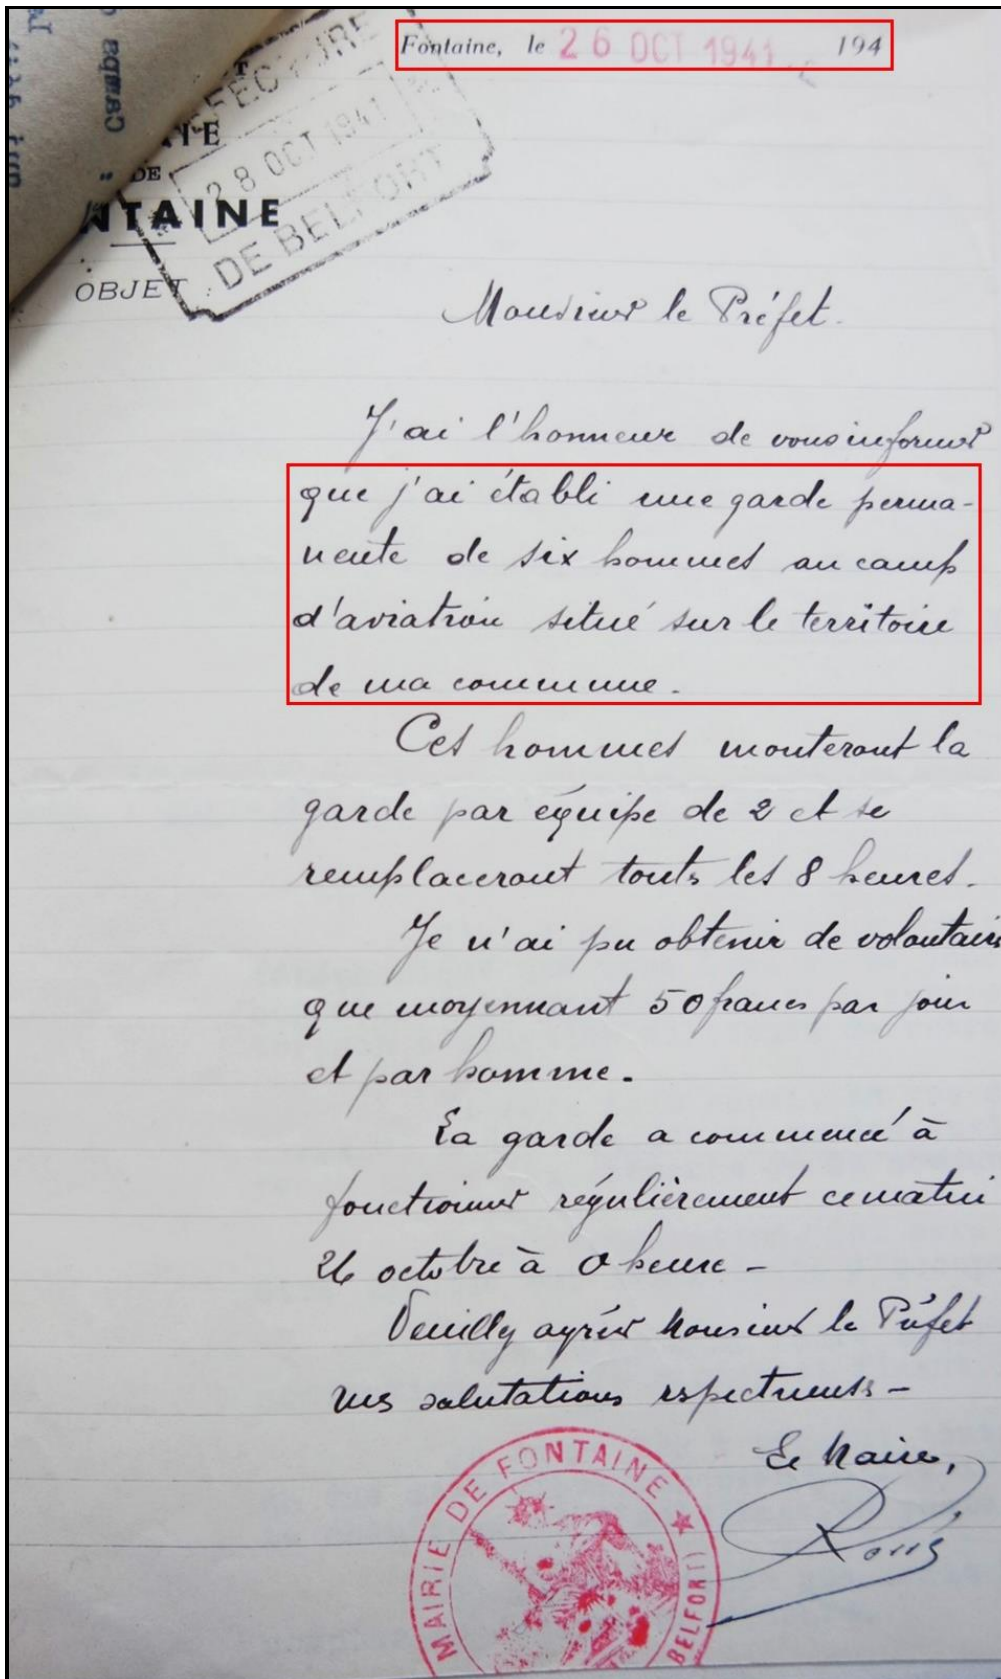 Fontaine, le 26 OCT 1941 194
PREFECTURE
28 OCT 1941
DE BELFORT
DE
NTAINE
OBJET :
Monsieur le Préfet.
J'ai l'honneur de vous informer
que j'ai établi une garde perma-
nente de six hommes au camp
d'aviation situé sur le territoire
de ma commune.
Ces hommes monteront la
garde par équipe de 2 et se
remplaceront touts les 8 heures.
Je n'ai pu obtenir de volontaires
que moyennant 50 francs par jour
et par homme.
La garde a commencé à
fonctionner régulièrement ce matin
26 octobre à 0 heure -
Veuilly agréer Monsieur le Préfet
mes salutations respectueuses -
Le Maire,
MAIRIE DE FONTAINE ★ (BELFORT)